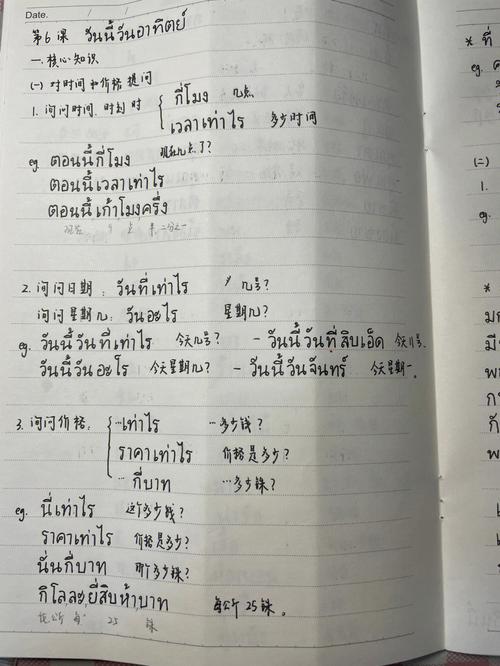 Date. / /
第6课 วันนี้วันอาทิตย์
一. 核心知识
(一) 对时间和价格提问
1. 询问时间、时刻时 { กี่โมง 几点
เวลาเท่าไร 多少时间
eg. ตอนนี้กี่โมง 现在几点了?
ตอนนี้เวลาเท่าไร
ตอนนี้เก้าโมงครึ่ง
现在 9 点 半、二分之一
2. 询问日期: วันที่เท่าไร 几号?
询问星期几: วันอะไร 星期几?
eg. วันนี้วันที่เท่าไร 今天几号? – วันนี้วันที่สิบเอ็ด 今天11号.
วันนี้วันอะไร 今天星期几? – วันนี้วันจันทร์ 今天星期一.
3. 询问价格: { …เท่าไร …多少钱?
ราคาเท่าไร 价格是多少?
… กี่บาท …多少铢?
eg. นี่เท่าไร 这个多少钱?
ราคาเท่าไร 价格是多少?
นั่นกี่บาท 那个多少铢?
กิโลละยี่สิบห้าบาท 每公斤25铢。
公斤 每 25 铢
* ที่
eg.
(二)
1.
eg.
*